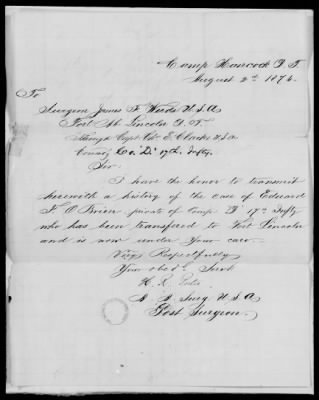 Camp Hancock D. T.
August 2nd 1876.
To
Surgeon James F. Weeds U.S.A
Fort Ab. Lincoln D. T.
Through Capt. E. Clarke U.S.A
Comdg Co. "D" 17th Infty.
Sir
I have the honor to transmit
herewith a history of the case of Edward
F. O'Brien private of Comp. D 17th Infty
who has been transfered to Fort Lincoln
and is now under Your care.
Very Respectfully
Your obedt Servt
H. R.
A A Surg U.S.A
Post Surgeon.